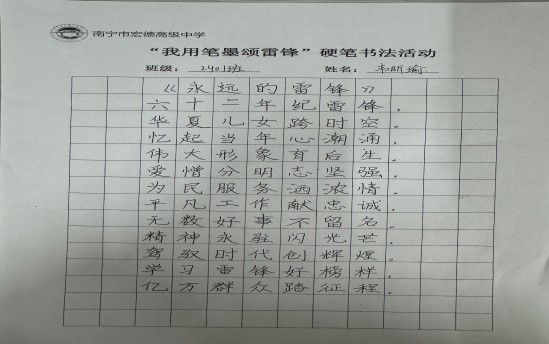 南宁市宏德高级中学
“我用笔墨颂雷锋”硬笔书法活动
班级: 2401班 姓名: 韦昕瑜
《永远的雷锋》
六十二年纪雷锋,
华夏儿女跨时空
忆起当年心潮涌,
伟大形象育后生.
爱憎分明志坚强,
为民服务洒浓情
平凡工作献忠诚,
无数好事不留名.
精神永驻闪光芒,
驾驭时代创辉煌.
学习雷锋好榜样,
亿万群众踏征程.